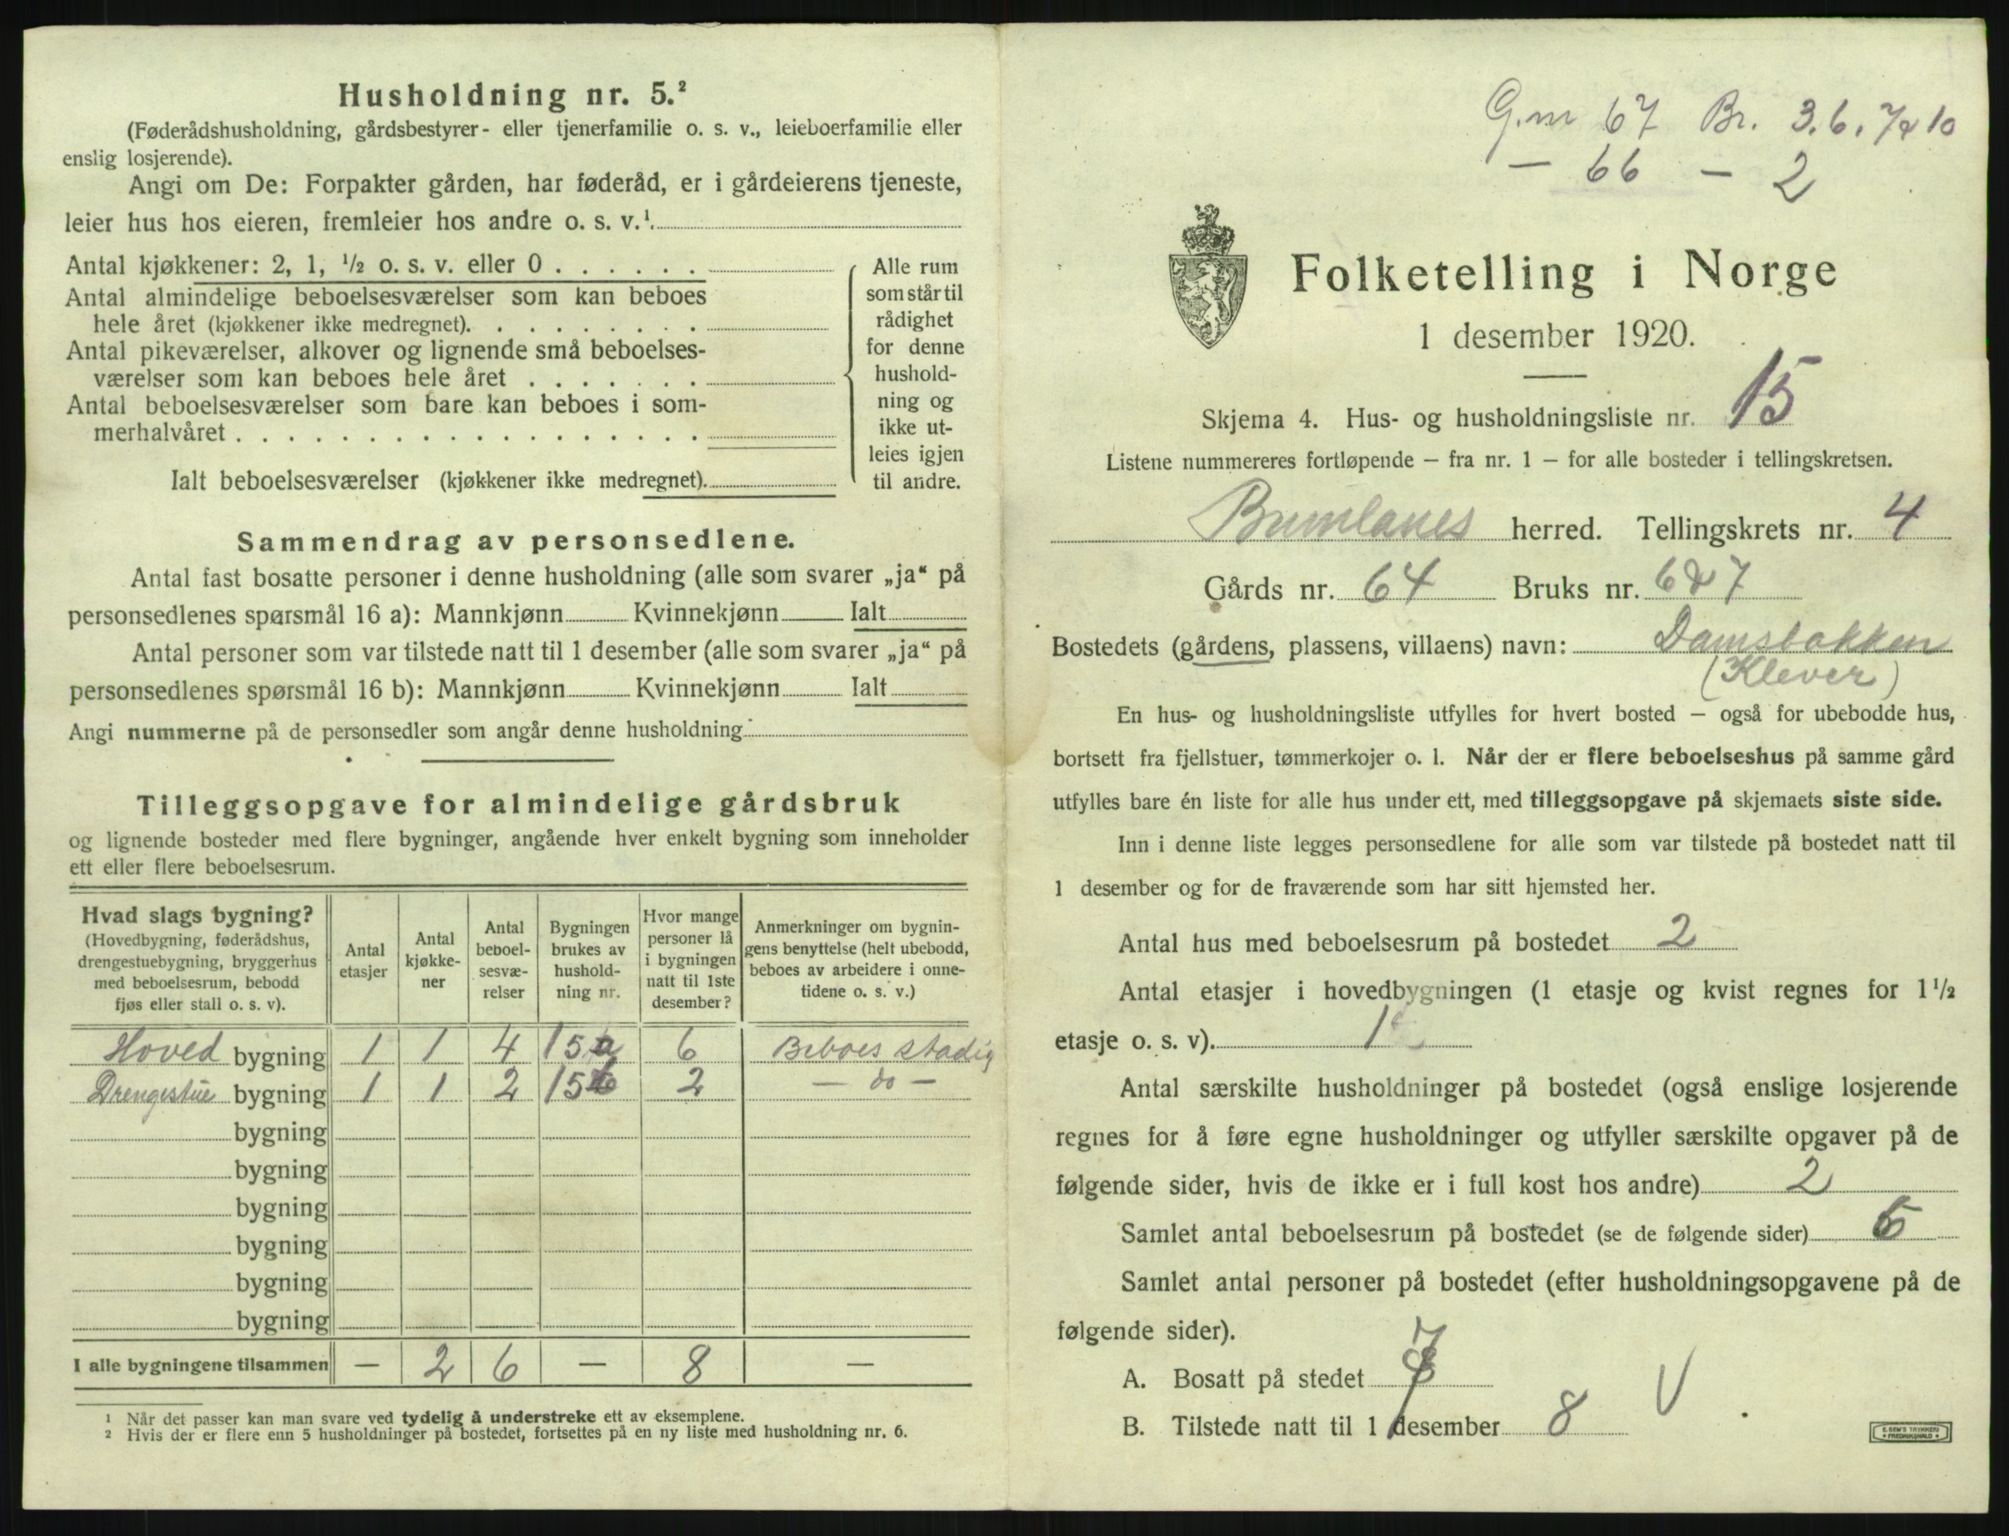 Husholdning nr. 5.²
(Føderådshusholdning, gårdsbestyrer- eller tjenerfamilie o. s. v., leieboerfamilie eller
enslig losjerende).
Angi om De: Forpakter gården, har føderåd, er i gårdeierens tjeneste,
leier hus hos eieren, fremleier hos andre o. s. v.¹
Antal kjøkkener: 2, 1, ½ o. s. v. eller 0
Antal almindelige beboelsesværelser som kan beboes
hele året (kjøkkener ikke medregnet).
Antal pikeværelser, alkover og lignende små beboelses-
værelser som kan beboes hele året
Antal beboelsesværelser som bare kan beboes i som-
merhalvåret
Ialt beboelsesværelser (kjøkkener ikke medregnet).
Alle rum
som står til
rådighet
for denne
hushold-
ning og
ikke ut-
leies igjen
til andre.
Sammendrag av personsedlene.
Antal fast bosatte personer i denne husholdning (alle som svarer „ja“ på
personsedlenes spørsmål 16 a): Mannkjønn Kvinnekjønn Ialt
Antal personer som var tilstede natt til 1 desember (alle som svarer „ja“ på
personsedlenes spørsmål 16 b): Mannkjønn Kvinnekjønn Ialt
Angi nummerne på de personsedler som angår denne husholdning:
Tilleggsopgave for almindelige gårdsbruk
og lignende bosteder med flere bygninger, angående hver enkelt bygning som inneholder
ett eller flere beboelsesrum.
Hvad slags bygning?
(Hovedbygning, føderådshus,
drengestuebygning, bryggerhus
med beboelsesrum, bebodd
fjøs eller stall o. s. v).
Antal
etasjer
Antal
kjøkke-
ner
Antal
beboel-
sesvæ-
relser
Bygningen
brukes av
hushold-
ning nr.
Hvor mange
personer lå
i bygningen
natt til 1ste
desember?
Anmerkninger om bygnin-
gens benyttelse (helt ubebodd,
beboes av arbeidere i onne-
tidene o. s. v.)
Hoved bygning 1 1 4 15a 6 Beboes stadig
Drengestue bygning 1 1 2 15b 2 — do —
bygning
bygning
bygning
bygning
bygning
bygning
I alle bygningene tilsammen — 2 6 — 8 —
¹ Når det passer kan man svare ved tydelig å understreke ett av eksemplene.
² Hvis der er flere enn 5 husholdninger på bostedet, fortsettes på en ny liste med husholdning nr. 6.
G.nr 67 Br. 3.6.7 & 10
— 66 — 2
Folketelling i Norge
1 desember 1920.
Skjema 4. Hus- og husholdningsliste nr. 15
Listene nummereres fortløpende – fra nr. 1 – for alle bosteder i tellingskretsen.
Brunlanes herred. Tellingskrets nr. 4
Gårds nr. 64 Bruks nr. 6 & 7
Bostedets (gårdens, plassens, villaens) navn: Damsbakken
(Klever)
En hus- og husholdningsliste utfylles for hvert bosted – også for ubebodde hus,
bortsett fra fjellstuer, tømmerkojer o. l. Når der er flere beboelseshus på samme gård
utfylles bare én liste for alle hus under ett, med tilleggsopgave på skjemaets siste side.
Inn i denne liste legges personsedlene for alle som var tilstede på bostedet natt til
1 desember og for de fraværende som har sitt hjemsted her.
Antal hus med beboelsesrum på bostedet 2
Antal etasjer i hovedbygningen (1 etasje og kvist regnes for 1½
etasje o. s. v). 1
Antal særskilte husholdninger på bostedet (også enslige losjerende
regnes for å føre egne husholdninger og utfyller særskilte opgaver på de
følgende sider, hvis de ikke er i full kost hos andre) 2
Samlet antal beboelsesrum på bostedet (se de følgende sider) 6
Samlet antal personer på bostedet (efter husholdningsopgavene på de
følgende sider). 7
A. Bosatt på stedet 8
B. Tilstede natt til 1 desember 8 V
E. SEM'S TRYKKERI
FREDRIKSHALD